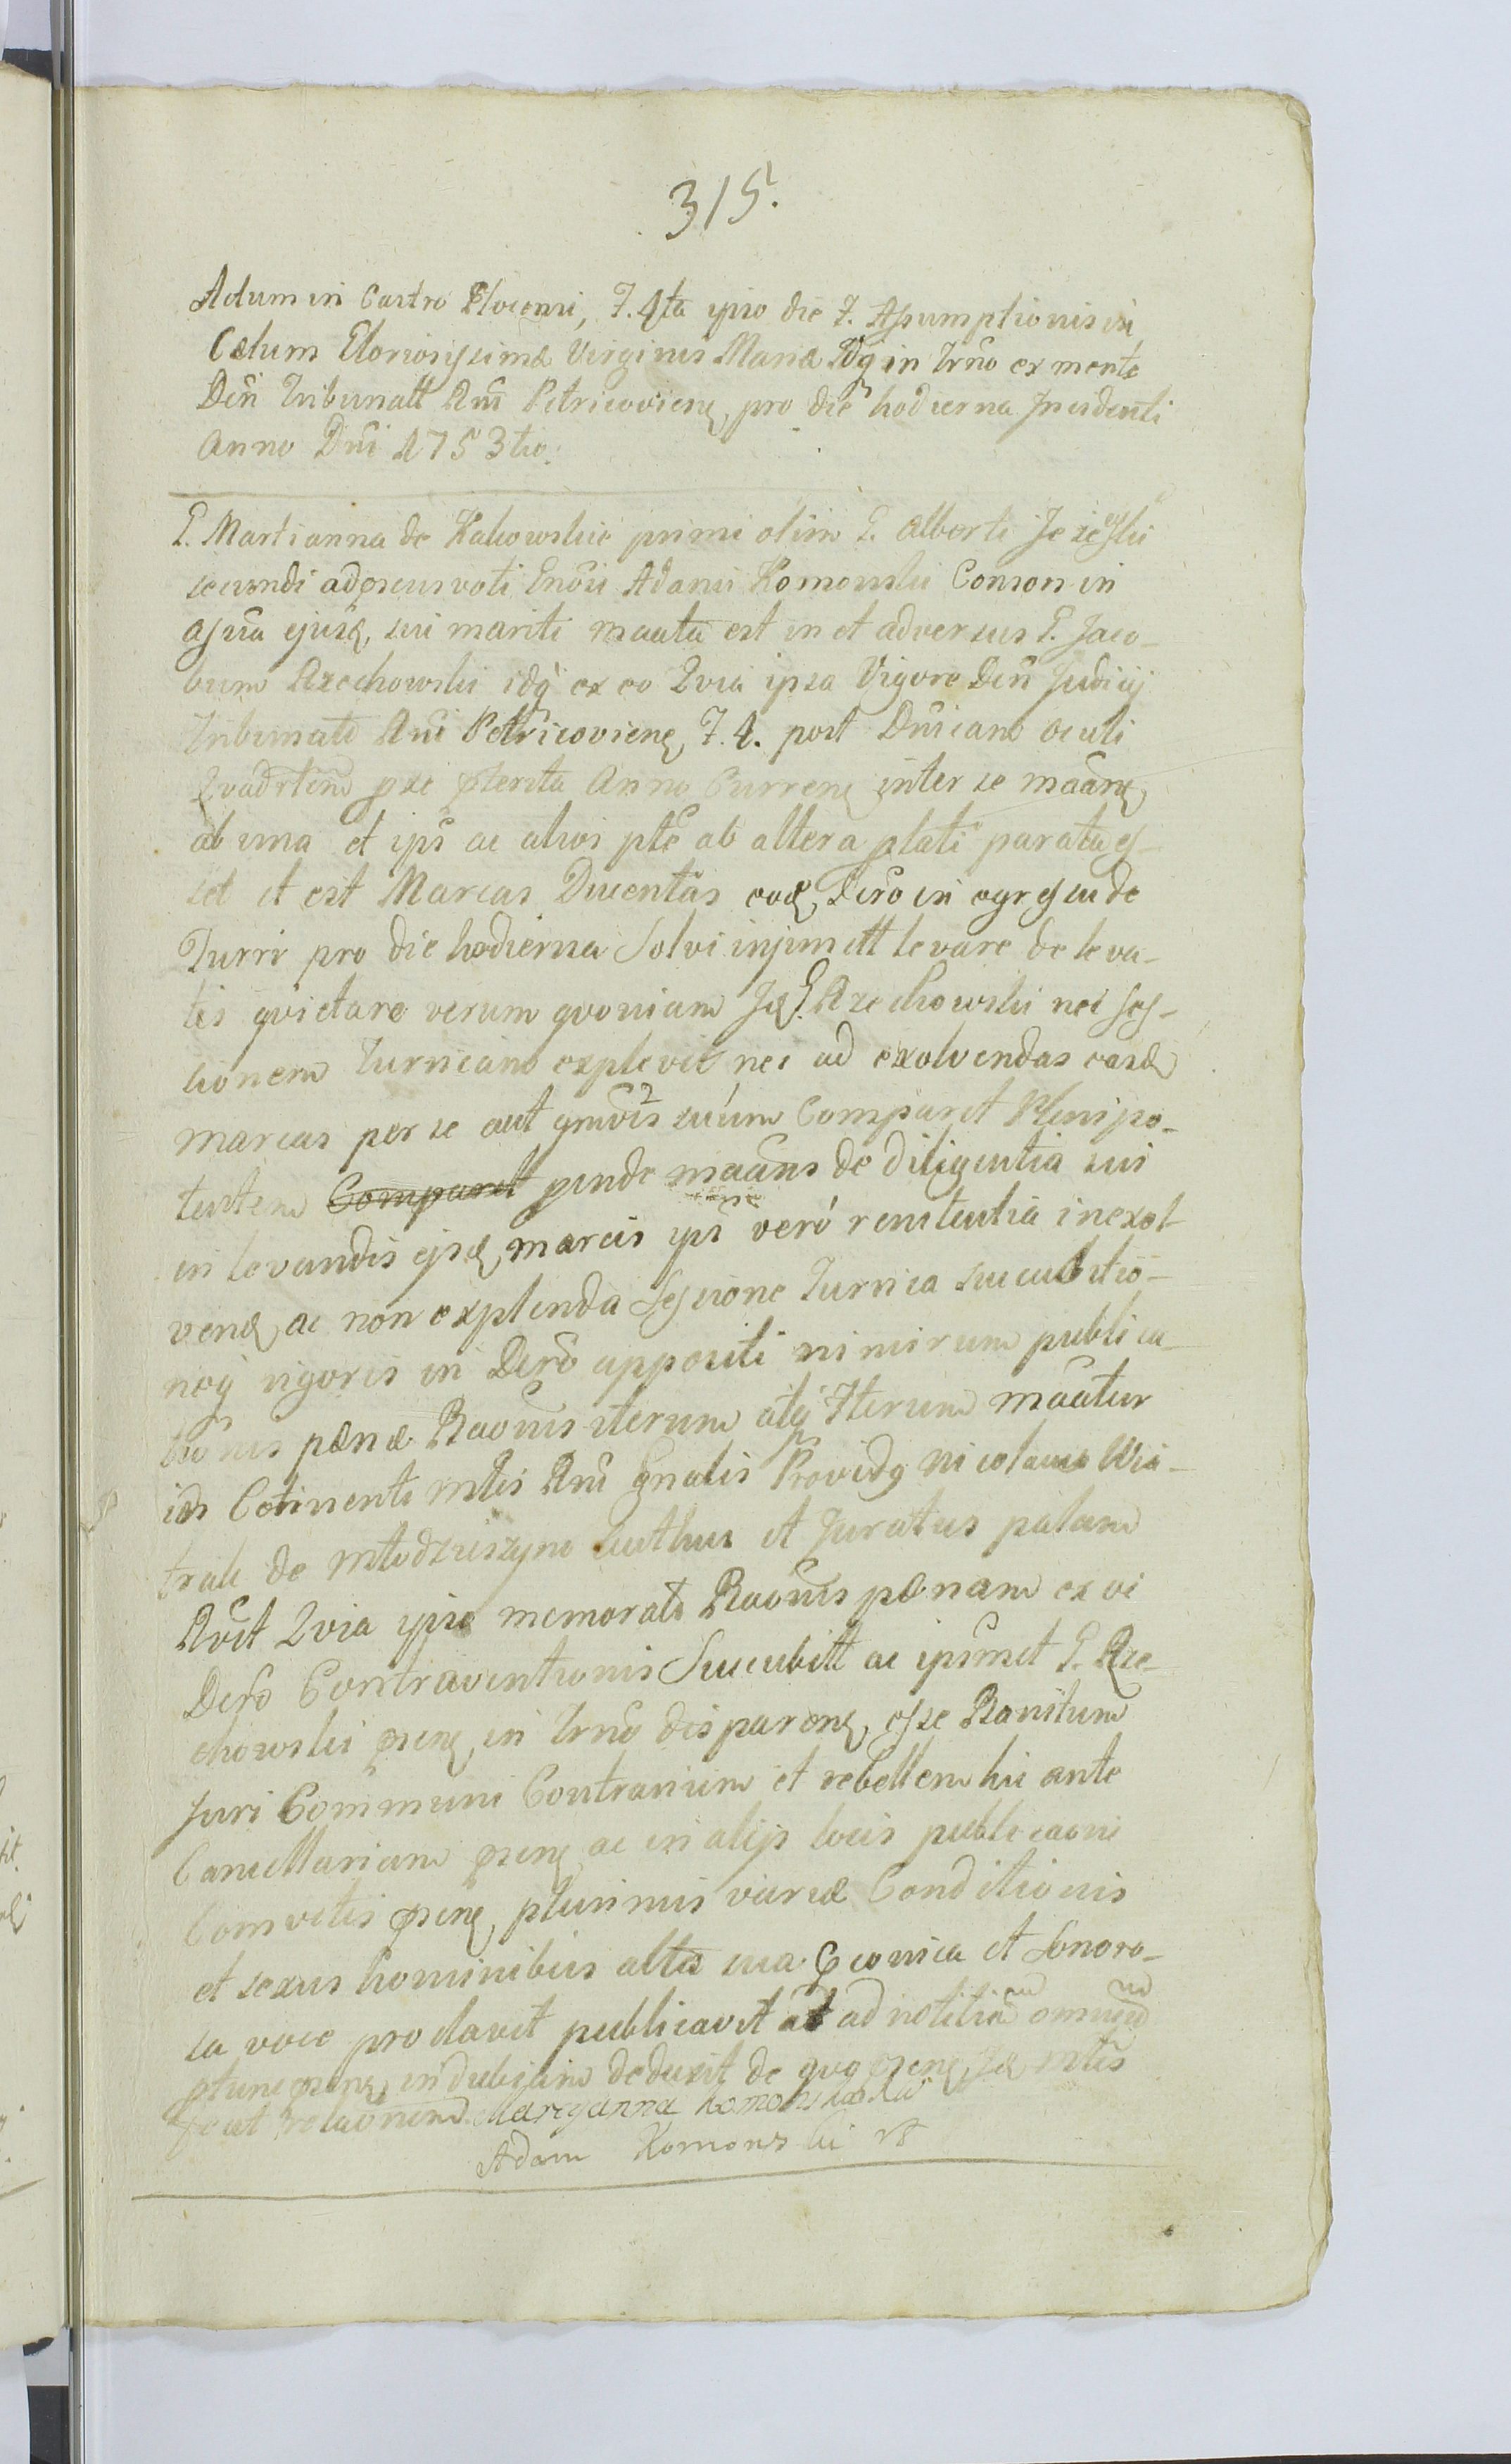 315.
Actum in Castro Plocensi, F. 4ta ipso die F. Assumptionis in
Cælum Gloriosissimæ Virginis Mariæ Idq in Trno ex mente
Dcti Tribunalt Rni Petricoviens pro die hodierna Incidenti
Anno Dni 1753tio.
G. Martianna de Kakowskie primi olim G. Alberti Jeżewski
secundi adpræsens voti Gnosi Adami Komowski Conson in
assña ejusd, sui mariti maata est in et adversus G. Jaco-
bum Rzechowski idq ex eo Qvia ipsa Vigore Dcti Judicij
Tribunalt Rni Petricoviens F. 4. post Dnicam oculi
Qvadrlem pxe pterita Anno Currens inter se maans
ab una et ips ac alios ptes ab altera plati parata es-
set et est Marcas Ducentas eod, Dcro in egressu de
Turri pro die hodierna Solvi injunctt levare de leva-
tis qvietare verum qvoniam Id G. Rzechowski nec Ses-
sionem Turricam explevit nec ad exolvendas easd
marcas per se aut qmvis suum Comparet Plenipo-
tentem Comparet pende maans de diligentia sui
in levandis ejsd marcis ips veró renitentia inexol-
vend ac non explenda Sessione Turrica succubitio-
neq rigoris in Dcro appositi nimirum publica-
tionis pænæ Baonis iterum atq Iterum maatur
ids Cotinenti Mtis Rni Gnalis Providq Nicolaus Wia-
trak de Młodzieszyn authus et Juratus palam
Rvit Qvia ipse memorata Baonis pænam ex vi
Dcro Contraventionis Succubitt ac ipsmet G. Rze-
chowski psens in Trno disparens esse Banitum
Juri Communi Contrarium et rebellem hic ante
Cancellariam psens ac in alijs locis publicaoni
Comvetis psens plurimis variæ Conditionis
et sexus hominibus alta sua Cconica et Sonoro-
sa voce proclavit publicavit at ad notitiam omnium
ptunc psens indubiam deduxit de quo psens Id Mtis
fecit relaonem Maryanna Komoska
Adam Komowski